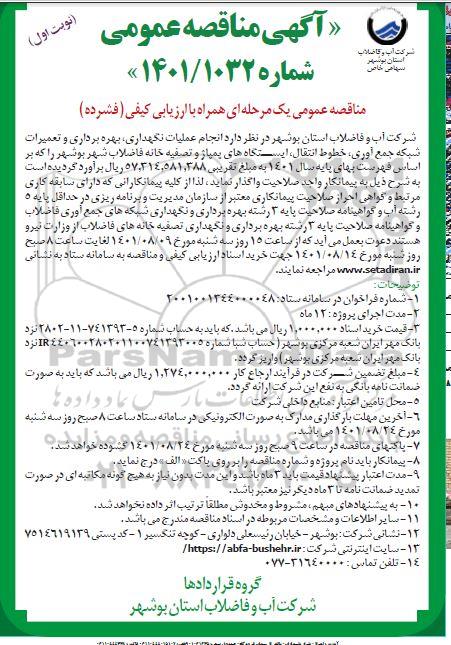 (نوبت اول)
« آگهی مناقصه عمومی
شماره ۱۴۰۱/۱۰۳۲ »
شرکت آب و فاضلاب
استان بوشهر
سهامی خاص
مناقصه عمومی یک مرحله ای همراه با ارزیابی کیفی ( فشرده )
شرکت آب و فاضلاب استان بوشهر در نظر دارد انجام عملیات نگهداری، بهره برداری و تعمیرات
شبکه جمع آوری، خطوط انتقال، ایستگاه های پمپاژ و تصفیه خانه فاضلاب شهر بوشهر را که بر
اساس فهرست بهای پایه سال ۱۴۰۱ به مبلغ تقریبی ۵۷,۳۱۴,۵۸۱,۳۸۸ ریال برآورد گردیده است
به شرح ذیل به پیمانکار واجد صلاحیت واگذار نماید، لذا از کلیه پیمانکارانی که دارای سابقه کاری
مرتبط و گواهی احراز صلاحیت پیمانکاری معتبر از سازمان مدیریت و برنامه ریزی در حداقل پایه ۵
رشته آب و گواهینامه صلاحیت پایه ۳ رشته بهره برداری و نگهداری شبکه های جمع آوری فاضلاب
و گواهینامه صلاحیت پایه ۳ رشته بهره برداری و نگهداری تصفیه خانه های فاضلاب از وزارت نیرو
هستند دعوت بعمل می آید که از ساعت ۱۵ روز سه شنبه مورخ ۱۴۰۱/۰۸/۰۹ لغایت ساعت ۸ صبح
روز شنبه مورخ ۱۴۰۱/۰۸/۱۴ جهت خرید اسناد ارزیابی کیفی و مناقصه به سامانه ستاد به نشانی
www.setadiran.ir مراجعه نمایند.
توضیحات:
۱- شماره فراخوان در سامانه ستاد: ۲۰۰۱۰۰۱۳۴۴۰۰۰۰۴۸
۲- مدت اجرای پروژه: ۱۲ ماه
۳- قیمت خرید اسناد ۱,۰۰۰,۰۰۰ ریال می باشد. که باید به حساب شماره ۵-۷۴۱۳۹۳-۱۱-۲۸۰۲ نزد
بانک مهر ایران شعبه مرکزی بوشهر (حساب شبا شماره IR۴۴۰۶۰۰۲۸۰۲۰۱۱۰۰۷۴۱۳۹۳۰۰۵ نزد
بانک مهر ایران شعبه مرکزی بوشهر) واریز گردد.
۴- مبلغ تضمین شرکت در فرآیند ارجاع کار ۱,۲۷۴,۰۰۰,۰۰۰ ریال می باشد که باید به صورت
ضمانت نامه بانکی به نفع این شرکت ارائه گردد.
۵- محل تامین اعتبار: منابع داخلی شرکت
۶- آخرین مهلت بارگذاری مدارک به صورت الکترونیکی در سامانه ستاد ساعت ۸ صبح روز سه شنبه
مورخ ۱۴۰۱/۰۸/۲۴ می باشد.
۷- پاکتهای مناقصه در ساعت ۹ صبح روز سه شنبه مورخ ۱۴۰۱/۰۸/۲۴ گشوده خواهد شد.
۸- پیمانکار باید نام پروژه و شماره مناقصه را بر روی پاکت «الف» درج نماید.
۹- مدت اعتبار پیشنهاد قیمت باید ۳ ماه باشد و این مدت بدون نیاز به هیچ گونه مکاتبه ای در صورت
تمدید ضمانت نامه تا ۳ ماه دیگر نیز معتبر باشد.
۱۰- به پیشنهادهای مبهم، مشروط و مخدوش مطلقا ترتیب اثر داده نخواهد شد.
۱۱- سایر اطلاعات و مشخصات مربوطه در اسناد مناقصه مندرج می باشد.
۱۲- نشانی شرکت: بوشهر - خیابان رئیسعلی دلواری - کوچه تنگسیر ۱ - کد پستی ۷۵۱۴۶۱۹۱۳۹
۱۳- سایت اینترنتی شرکت: https://abfa-bushehr.ir/
۱۴- تلفن تماس: ۳۱۶۴۰۰۰۰-۰۷۷
گروه قراردادها
شرکت آب و فاضلاب استان بوشهر